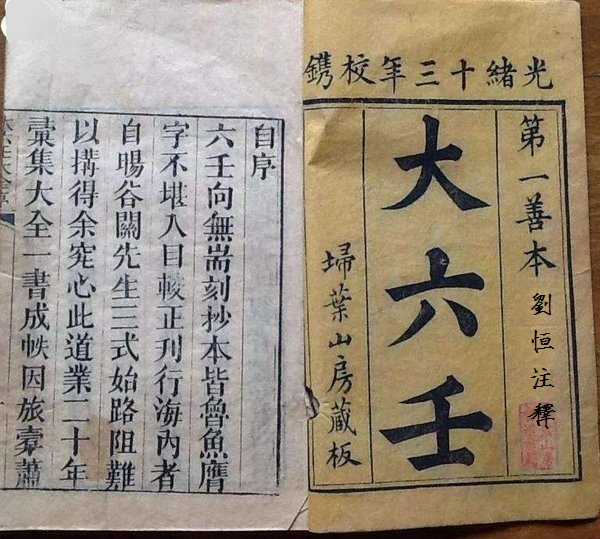 光緒十三年校鐫
第一善本
劉恒注釋
大六壬
埽葉山房蔵板
自序
六壬向無耑刻抄本皆魯魚膺
字不堪入目較正刊行海內者
自暘谷關先生三式始路阻難
以搆得余究心此道業二十年
彙集大全一書成帙因旅橐蕭